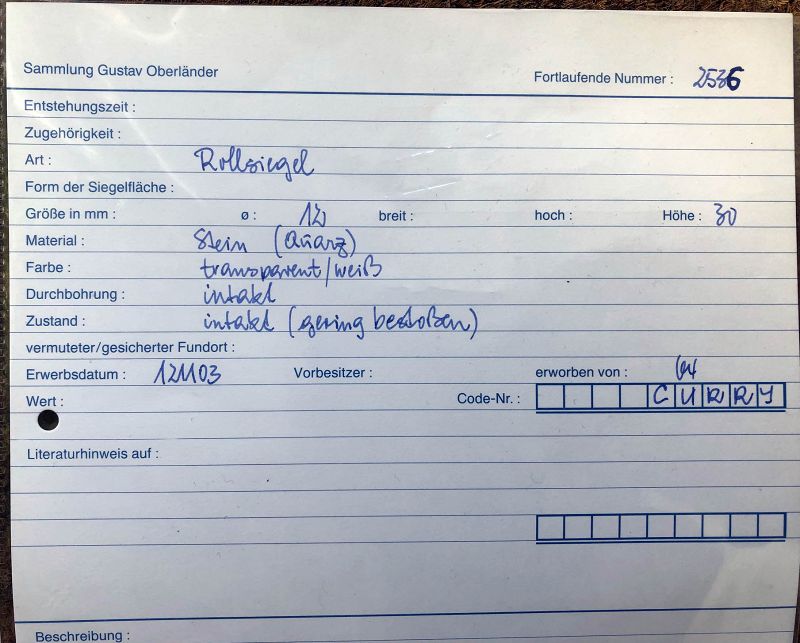 Sammlung Gustav Oberländer
Fortlaufende Nummer : 2536
Entstehungszeit :
Zugehörigkeit :
Art : Rollsiegel
Form der Siegelfläche :
Größe in mm : ø : 12 breit : hoch : Höhe : 30
Material : Stein (Quarz)
Farbe : transparent/weiß
Durchbohrung : intakt
Zustand : intakt (gering bestoßen)
vermuteter/gesicherter Fundort :
Erwerbsdatum : 121103 Vorbesitzer : erworben von :
Wert : Code-Nr. : CURRY
Literaturhinweis auf :
Beschreibung :